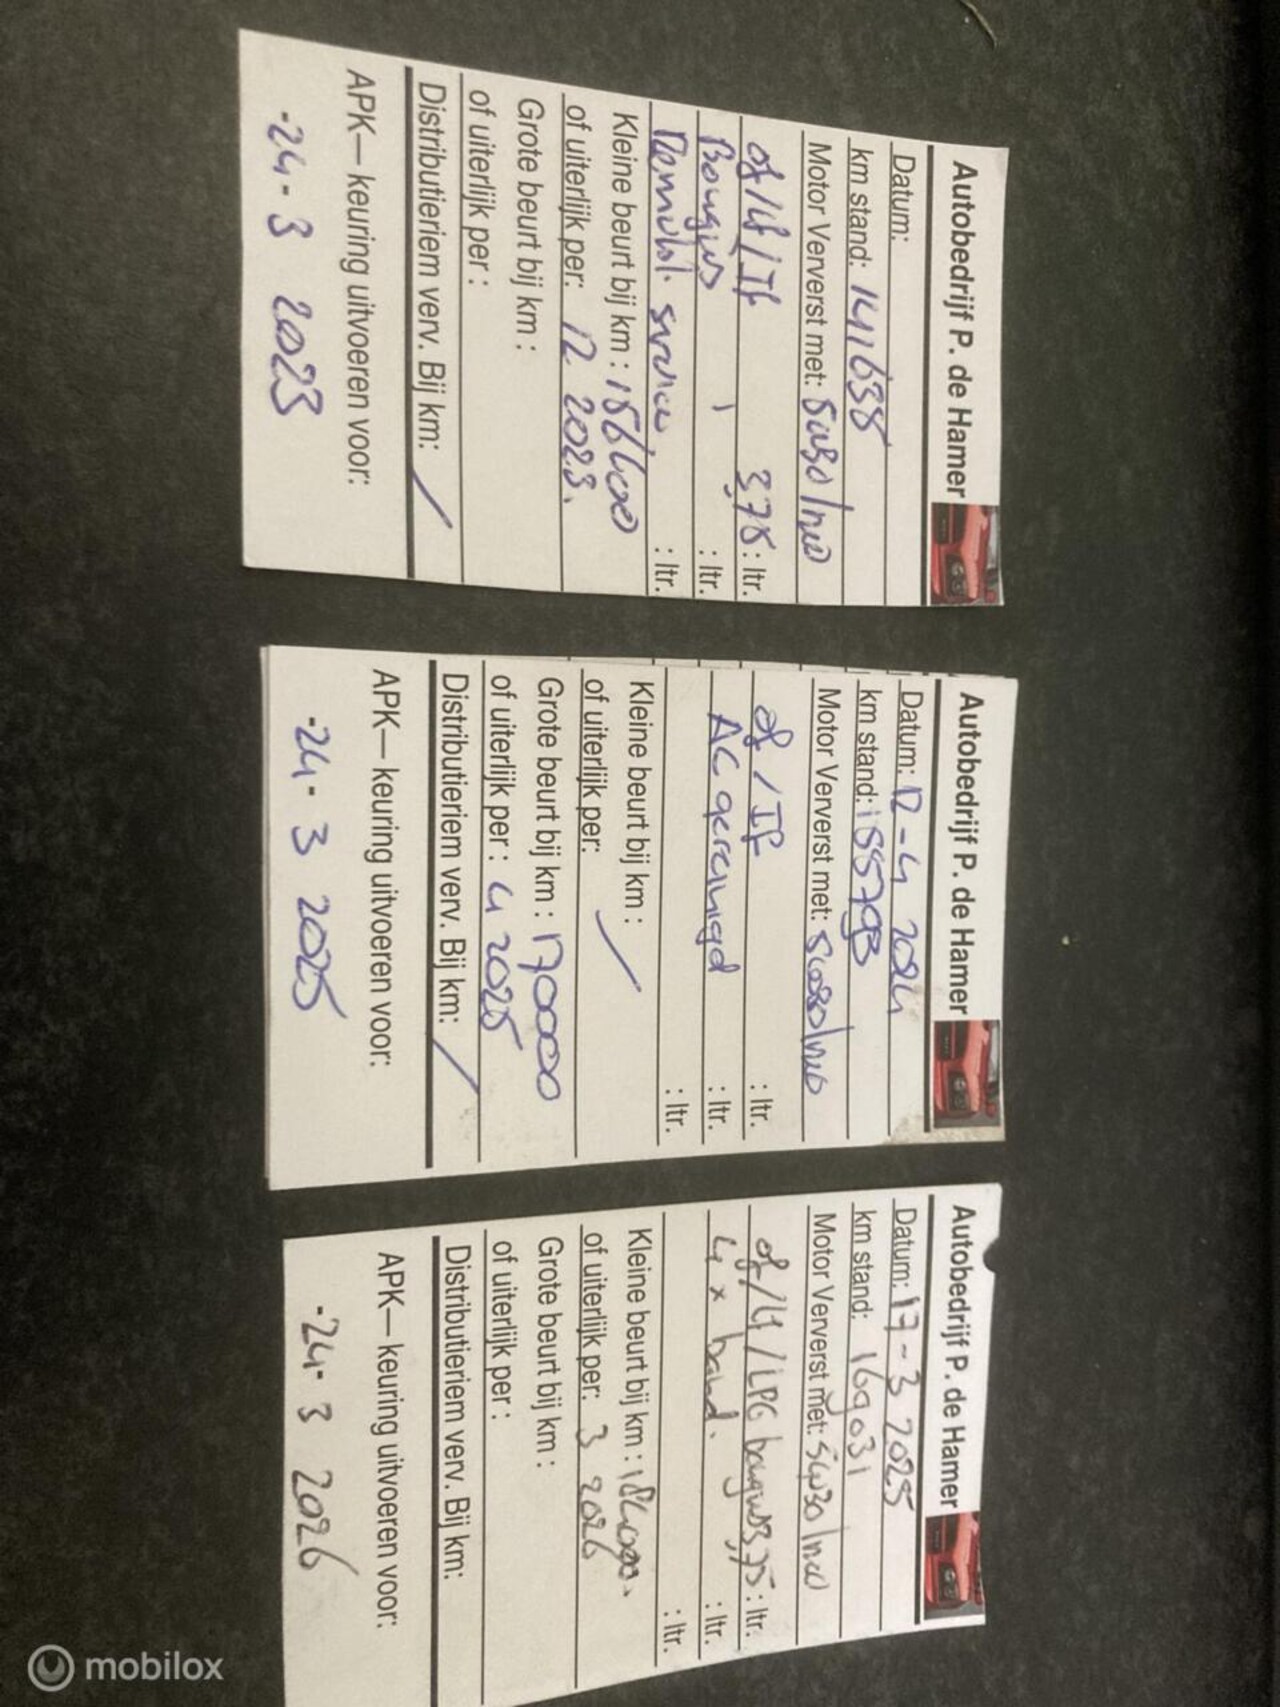 Autobedrijf P. de Hamer
Datum:
km stand: 141638
Motor Ververst met: 5w30/nw
of/lf/If 3,75: ltr.
Bougies : ltr.
Remvlst. : ltr.
Kleine beurt bij km : 156600
of uiterlijk per: 12 2023.
Grote beurt bij km :
of uiterlijk per :
Distributieriem verv. Bij km: /
APK— keuring uitvoeren voor:
-24-3 2023
Autobedrijf P. de Hamer
Datum: 12-4 2024
km stand: 155793
Motor Ververst met: 5w30/nw
of / If : ltr.
AC gereinigd : ltr.
: ltr.
Kleine beurt bij km : /
of uiterlijk per:
Grote beurt bij km : 170000
of uiterlijk per : 4 2025
Distributieriem verv. Bij km: /
APK— keuring uitvoeren voor:
-24-3 2025
Autobedrijf P. de Hamer
Datum: 17-3 2025
km stand: 169031
Motor Ververst met: 5w30/nw
of/lf/LPG bougies 3,75: ltr.
4 x band. : ltr.
: ltr.
Kleine beurt bij km : 184000.
of uiterlijk per: 3 2026
Grote beurt bij km :
of uiterlijk per :
Distributieriem verv. Bij km:
APK— keuring uitvoeren voor:
-24-3 2026
mobilox